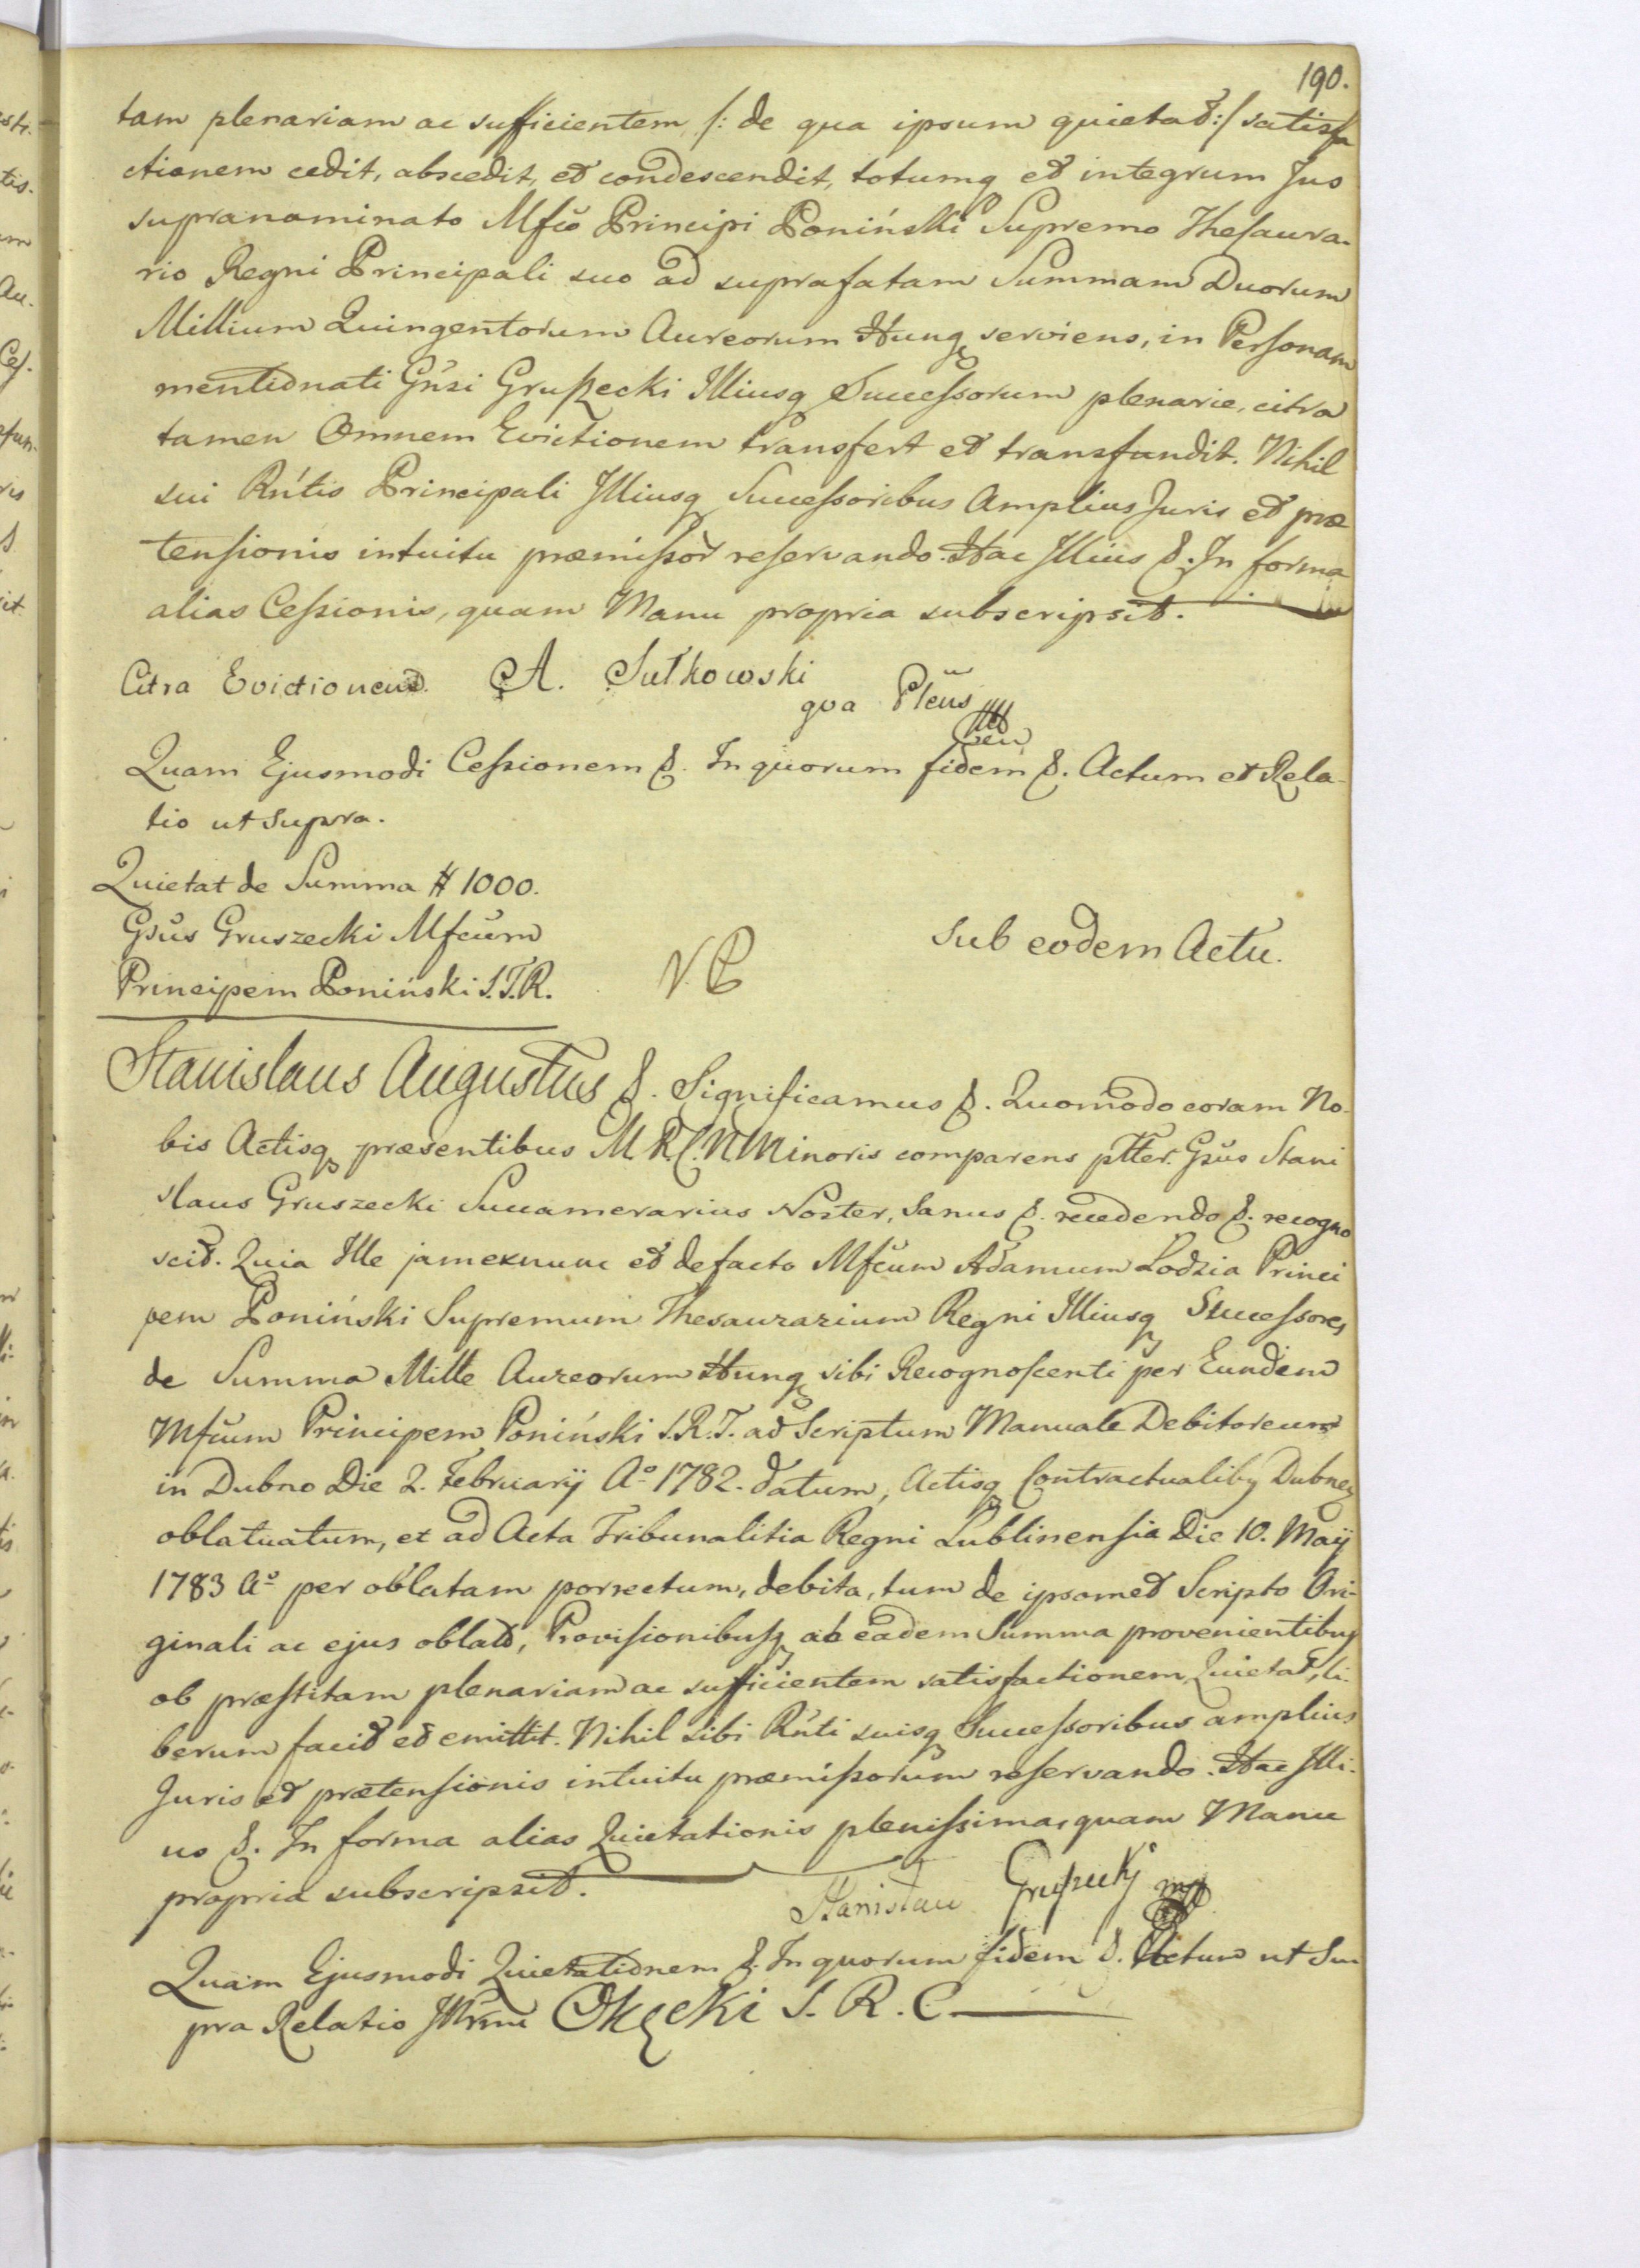 190.
tam plenariam ac sufficientem /: de qua ipsum quietat :/ satisfa
ctionem cedit, abscedit, et condescendit, totumq et integrum Jus
supranominato Mfco Principi Poniński Supremo Thesaura-
rio Regni Principali suo ad suprafatam Summam Duorum
Millium Quingentorum Aureorum Hung serviens, in Personam
mentionati Gnsi Grußecki Illiusq Successorum plenarie, citra
tamen Omnem Evictionem transfert et transfundit. Nihil
sui Rntis Principali Illiusq Successoribus Amplius Juris et præ
tensionis intuitu præmissor reservando. Hac Illius &. In forma
alias Cessionis, quam Manu propria subscripsit.
Citra Evictionem. A. Sułkowski
qua Plenus
Quam Ejusmodi Cessionem &. In quorum fidem &. Actum et Rela-
tio ut supra.
Quietat de Summa # 1000.
Gsus Gruszecki Mfcum
Principem Poniński S.T.R.
sub eodem Actu.
Stanislaus Augustus &. Significamus &. Quomodo coram No-
bis Actisq præsentibus M. R. C. N. Minoris comparens ptter. Gsus Stani
slaus Gruszecki Succamerarius Noster, Sanus &. recedendo &. recogno
scit. Quia Ille jam exnunc et defacto Mfcum Adamum Lodzia Princi
pem Poniński Supremum Thesaurarium Regni Illiusq Successores
de Summa Mille Aureorum Hung sibi Recognoscenti per Eundem
Mfcum Principem Poniński S.R.T. ad Scriptum Manuale Debitoreum
in Dubno Die 2. Februarij Ao 1782. datum, Actisq Contractualiby Dubney
oblatuatum, et ad Acta Tribunalitia Regni Lublinensia Die 10. Maij
1783 Ao per oblatam porrectum, debita, tum de ipsomet Scripto Ori-
ginali ac ejus oblat, Provisionibusq ab eadem Summa provenientibus
ob præstitam plenariam ac sufficientem satisfactionem Quietat, li-
berum facit et emittit. Nihil sibi Rnti suisq Successoribus amplius
Juris et prætensionis intuitu præmissorum reservando. Hac Illi-
us &. In forma alias Quietationis plenissima, quam Manu
propria subscripsit. Stanisław Grußecki mp
Quam Ejusmodi Quietationem &. In quorum fidem &. Actum ut Su
pra Relatio Illrmi Okęcki S. R. C.